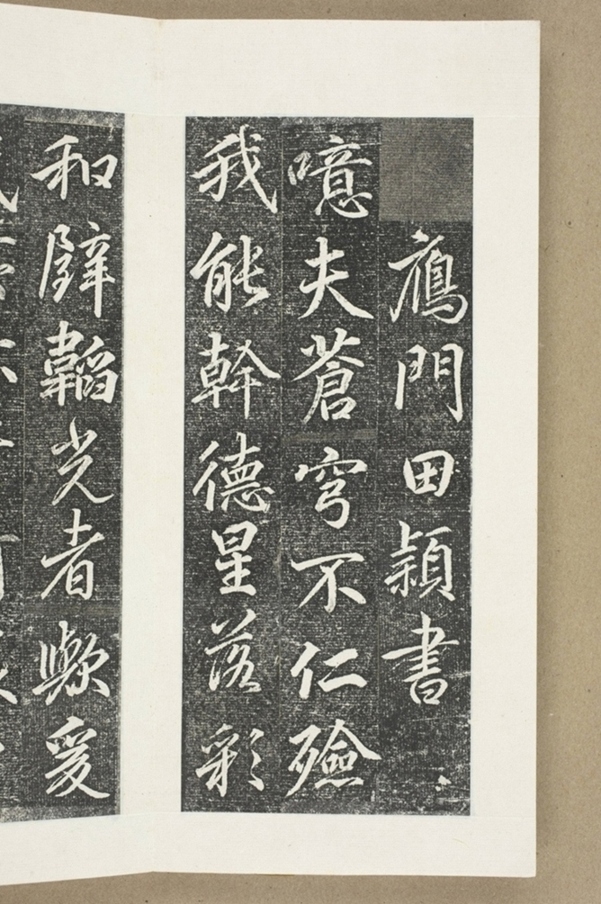 鴈門田頴書
噫夫蒼穹不仁殮
我能幹德星落彩
和璧韜光者歟爰